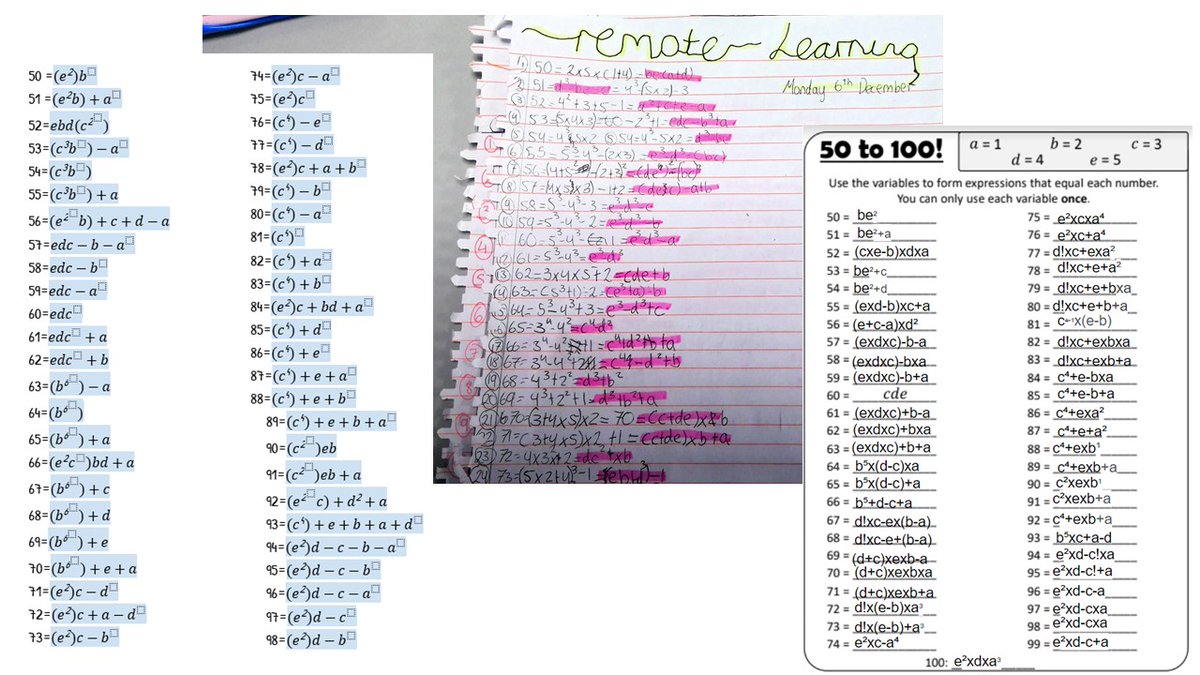 50 =(e²)b
51 =(e²b) + a
52=ebd(c²)
53=(c³b) − a
54=(c³b)
55=(c³b) + a
56=(e²b) + c + d − a
57=edc − b − a
58=edc − b
59=edc − a
60=edc
61=edc + a
62=edc + b
63=(b⁶) − a
64=(b⁶)
65=(b⁶) + a
66=(e²c)bd + a
67=(b⁶) + c
68=(b⁶) + d
69=(b⁶) + e
70=(b⁶) + e + a
71=(e²)c − d
72=(e²)c + a − d
73=(e²)c − b
74=(e²)c − a
75=(e²)c
76=(c⁴) − e
77=(c⁴) − d
78=(e²)c + a + b
79=(c⁴) − b
80=(c⁴) − a
81=(c⁴)
82=(c⁴) + a
83=(c⁴) + b
84=(e²)c + bd + a
85=(c⁴) + d
86=(c⁴) + e
87=(c⁴) + e + a
88=(c⁴) + e + b
89=(c⁴) + e + b + a
90=(c²)eb
91=(c²)eb + a
92=(e²c) + d² + a
93=(c⁴) + e + b + a + d
94=(e²)d − c − b − a
95=(e²)d − c − b
96=(e²)d − c − a
97=(e²)d − c
98=(e²)d − b
remote Learning
Monday 6th December
1) 50 = 2x5x(1+4) = be(a+d)
3) 52=4²+3+5-1=d²+c+e-a
9) 58=5³-4³-3=e³-d³-c
10) 59=5³-4³-2=e³-d³-b
60=5³-4³-1=e³-d³-a
12) 61=5³-4³=e³-d³
13) 62=3x4x5+2=cde+b
14) 63=(5³+1)÷2=(e³+a)÷b
64=5³-4³+3=e³-d³+c
65=3⁴-4²=c⁴-d²
19) 68=4³+2²=d³+b²
20) 69=4³+2²+1=d³+b²+a
21) 70=(3+4x5)x2=70=(c+de)xb
22) 71=(3+4x5)x2+1=(c+de)xb+a
23) 72=4x3x+2=
24) 73=(5x2+4)²-1
50 to 100!
a = 1 b = 2 c = 3
d = 4 e = 5
Use the variables to form expressions that equal each number.
You can only use each variable once.
50 = be²
51 = be²+a
52 = (cxe-b)xdxa
53 = be²+c
54 = be²+d
55 = (exd-b)xc+a
56 = (e+c-a)xd²
57 = (exdxc)-b-a
58 = (exdxc)-bxa
59 = (exdxc)-b+a
60 = cde
61 = (exdxc)+b-a
62 = (exdxc)+bxa
63 = (exdxc)+b+a
64 = b⁵x(d-c)xa
65 = b⁵x(d-c)+a
66 = b⁵+d-c+a
67 = d!xc-ex(b-a)
68 = d!xc-e+(b-a)
69 = (d+c)xexb-a
70 = (d+c)xexbxa
71 = (d+c)xexb+a
72 = d!x(e-b)xa³
73 = d!x(e-b)+a³
74 = e²xc-a⁴
75 = e²xcxa⁴
76 = e²xc+a⁴
77 = d!xc+exa²
78 = d!xc+e+a²
79 = d!xc+e+bxa
80 = d!xc+e+b+a
81 = c⁴÷x(e-b)
82 = d!xc+exbxa
83 = d!xc+exb+a
84 = c⁴+e-bxa
85 = c⁴+e-b+a
86 = c⁴+exa²
87 = c⁴+e+a²
88 = c⁴+exb¹
89 = c⁴+exb+a
90 = c²xexb¹
91 = c²xexb+a
92 = c⁴+exb+a
93 = b⁵xc+a-d
94 = e²xd-c!xa
95 = e²xd-c!+a
96 = e²xd-c-a
97 = e²xd-cxa
98 = e²xd-cxa
99 = e²xd-c+a
100: e²xdxa³